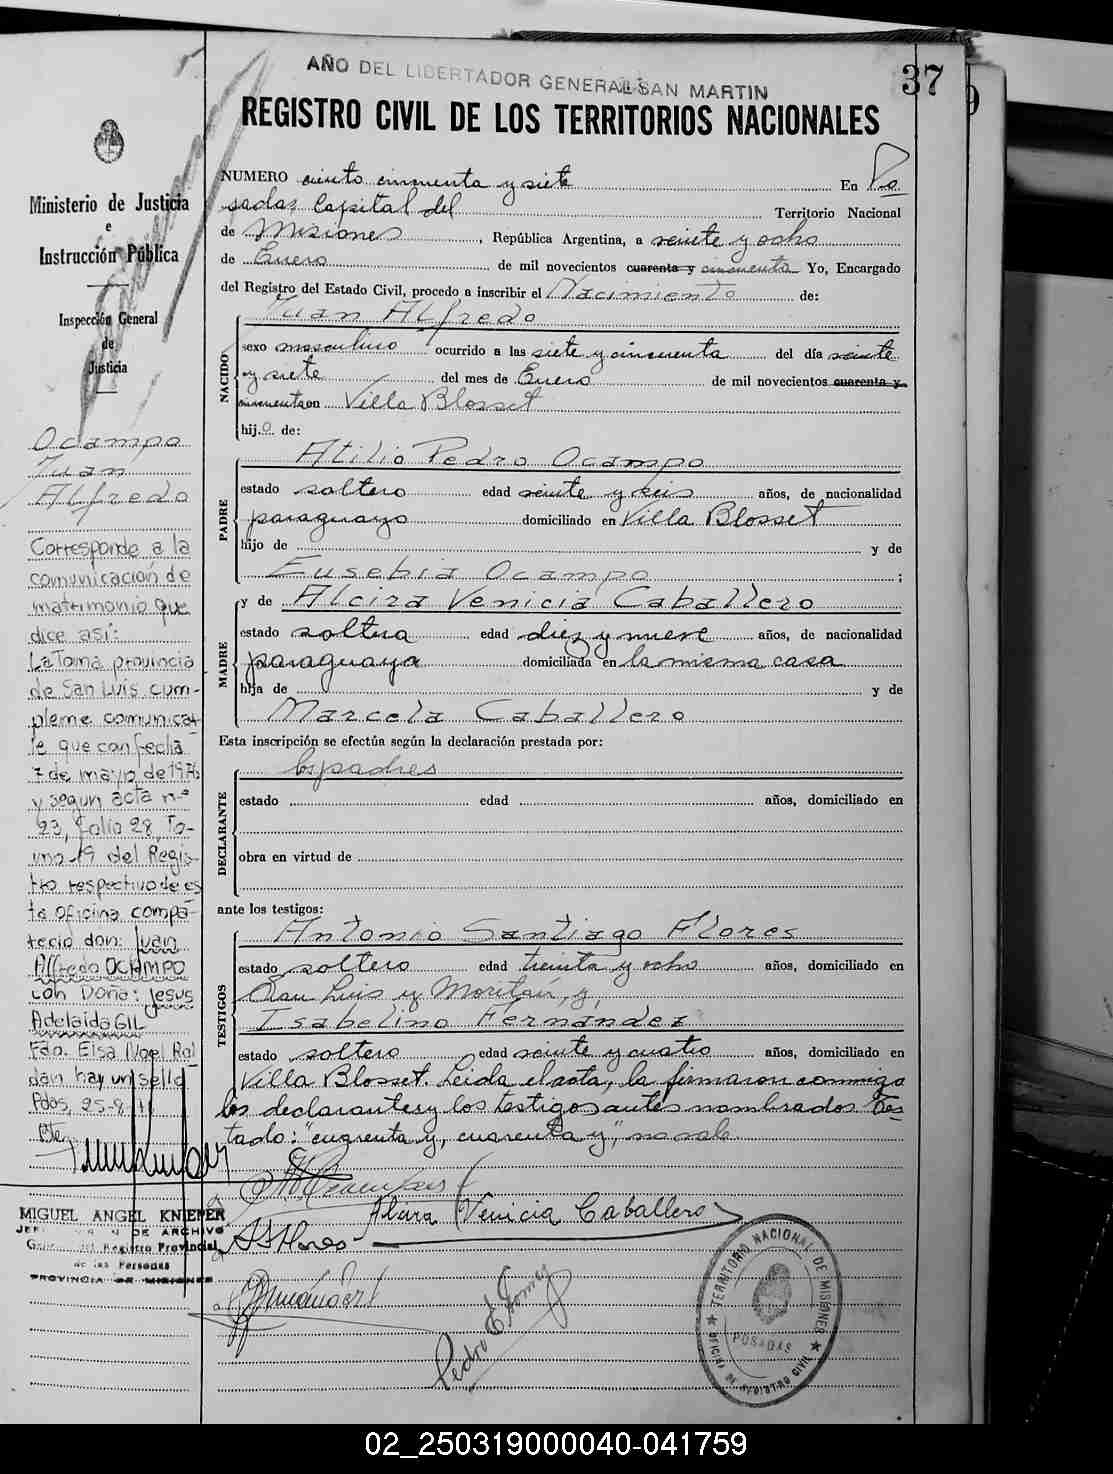 AÑO DEL LIBERTADOR GENERAL SAN MARTIN
37
REGISTRO CIVIL DE LOS TERRITORIOS NACIONALES
NUMERO ciento cincuenta y siete En Po
sadas Capital del Territorio Nacional
de Misiones, República Argentina, a veinte y ocho
de Enero de mil novecientos cuarenta y cincuenta Yo, Encargado
del Registro del Estado Civil, procedo a inscribir el Nacimiento de:
Juan Alfredo
NACIDO
sexo masculino ocurrido a las siete y cincuenta del día veinte
y siete del mes de Enero de mil novecientos cuarenta y
cincuenta en Villa Blosset
hijo de:
Atilio Pedro Ocampo
PADRE
estado soltero edad veinte y seis años, de nacionalidad
paraguayo domiciliado en Villa Blosset
hijo de y de
Eusebia Ocampo ;
y de Alcira Venicia Caballero
MADRE
estado soltera edad diez y nueve años, de nacionalidad
paraguaya domiciliada en la misma casa
hija de y de
Marcela Caballero
Esta inscripción se efectúa según la declaración prestada por:
los padres
DECLARANTE
estado edad años, domiciliado en
obra en virtud de
ante los testigos:
Antonio Santiago Flores
TESTIGOS
estado soltero edad treinta y ocho años, domiciliado en
San Luis y Moritán, y,
Isabelino Fernández
estado soltero edad veinte y cuatro años, domiciliado en
Villa Blosset. Leida el acta, la firmaron conmigo
los declarantes y los testigos antes nombrados. Tes-
tado: "cuarenta y, cuarenta y," no vale.
Alcira Venicia Caballero
A S Flores
Pedro E. Gomez
TERRITORIO NACIONAL DE MISIONES
POSADAS
OFICINA DE REGISTRO CIVIL
Ministerio de Justicia
e
Instrucción Pública
Inspección General
de
Justicia
Ocampo
Juan
Alfredo
Corresponde a la
comunicación de
matrimonio que
dice así:
La Toma provincia
de San Luis cum-
pleme comunicar
le que con fecha
7 de mayo de 1976
y segun acta nº
23, folio 28, To-
mo 19 del Regis-
tro respectivo de es
ta oficina compa-
recio don: Juan
Alfredo OCAMPO
con Doña: Jesus
Adelaida GIL
Fdo. Elsa Noel Rol
dán hay un sello
Pdas, 25-8
MIGUEL ANGEL KNIEPER
DE ARCHIVO
Registro Provincial
de las Personas
PROVINCIA DE MISIONES
02_250319000040-041759